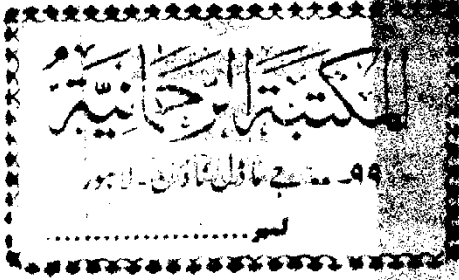 المكتبة الرحمانية
۹۹ ـــ جے ماڈل ٹاؤن ـ لاہور
نمبر....................